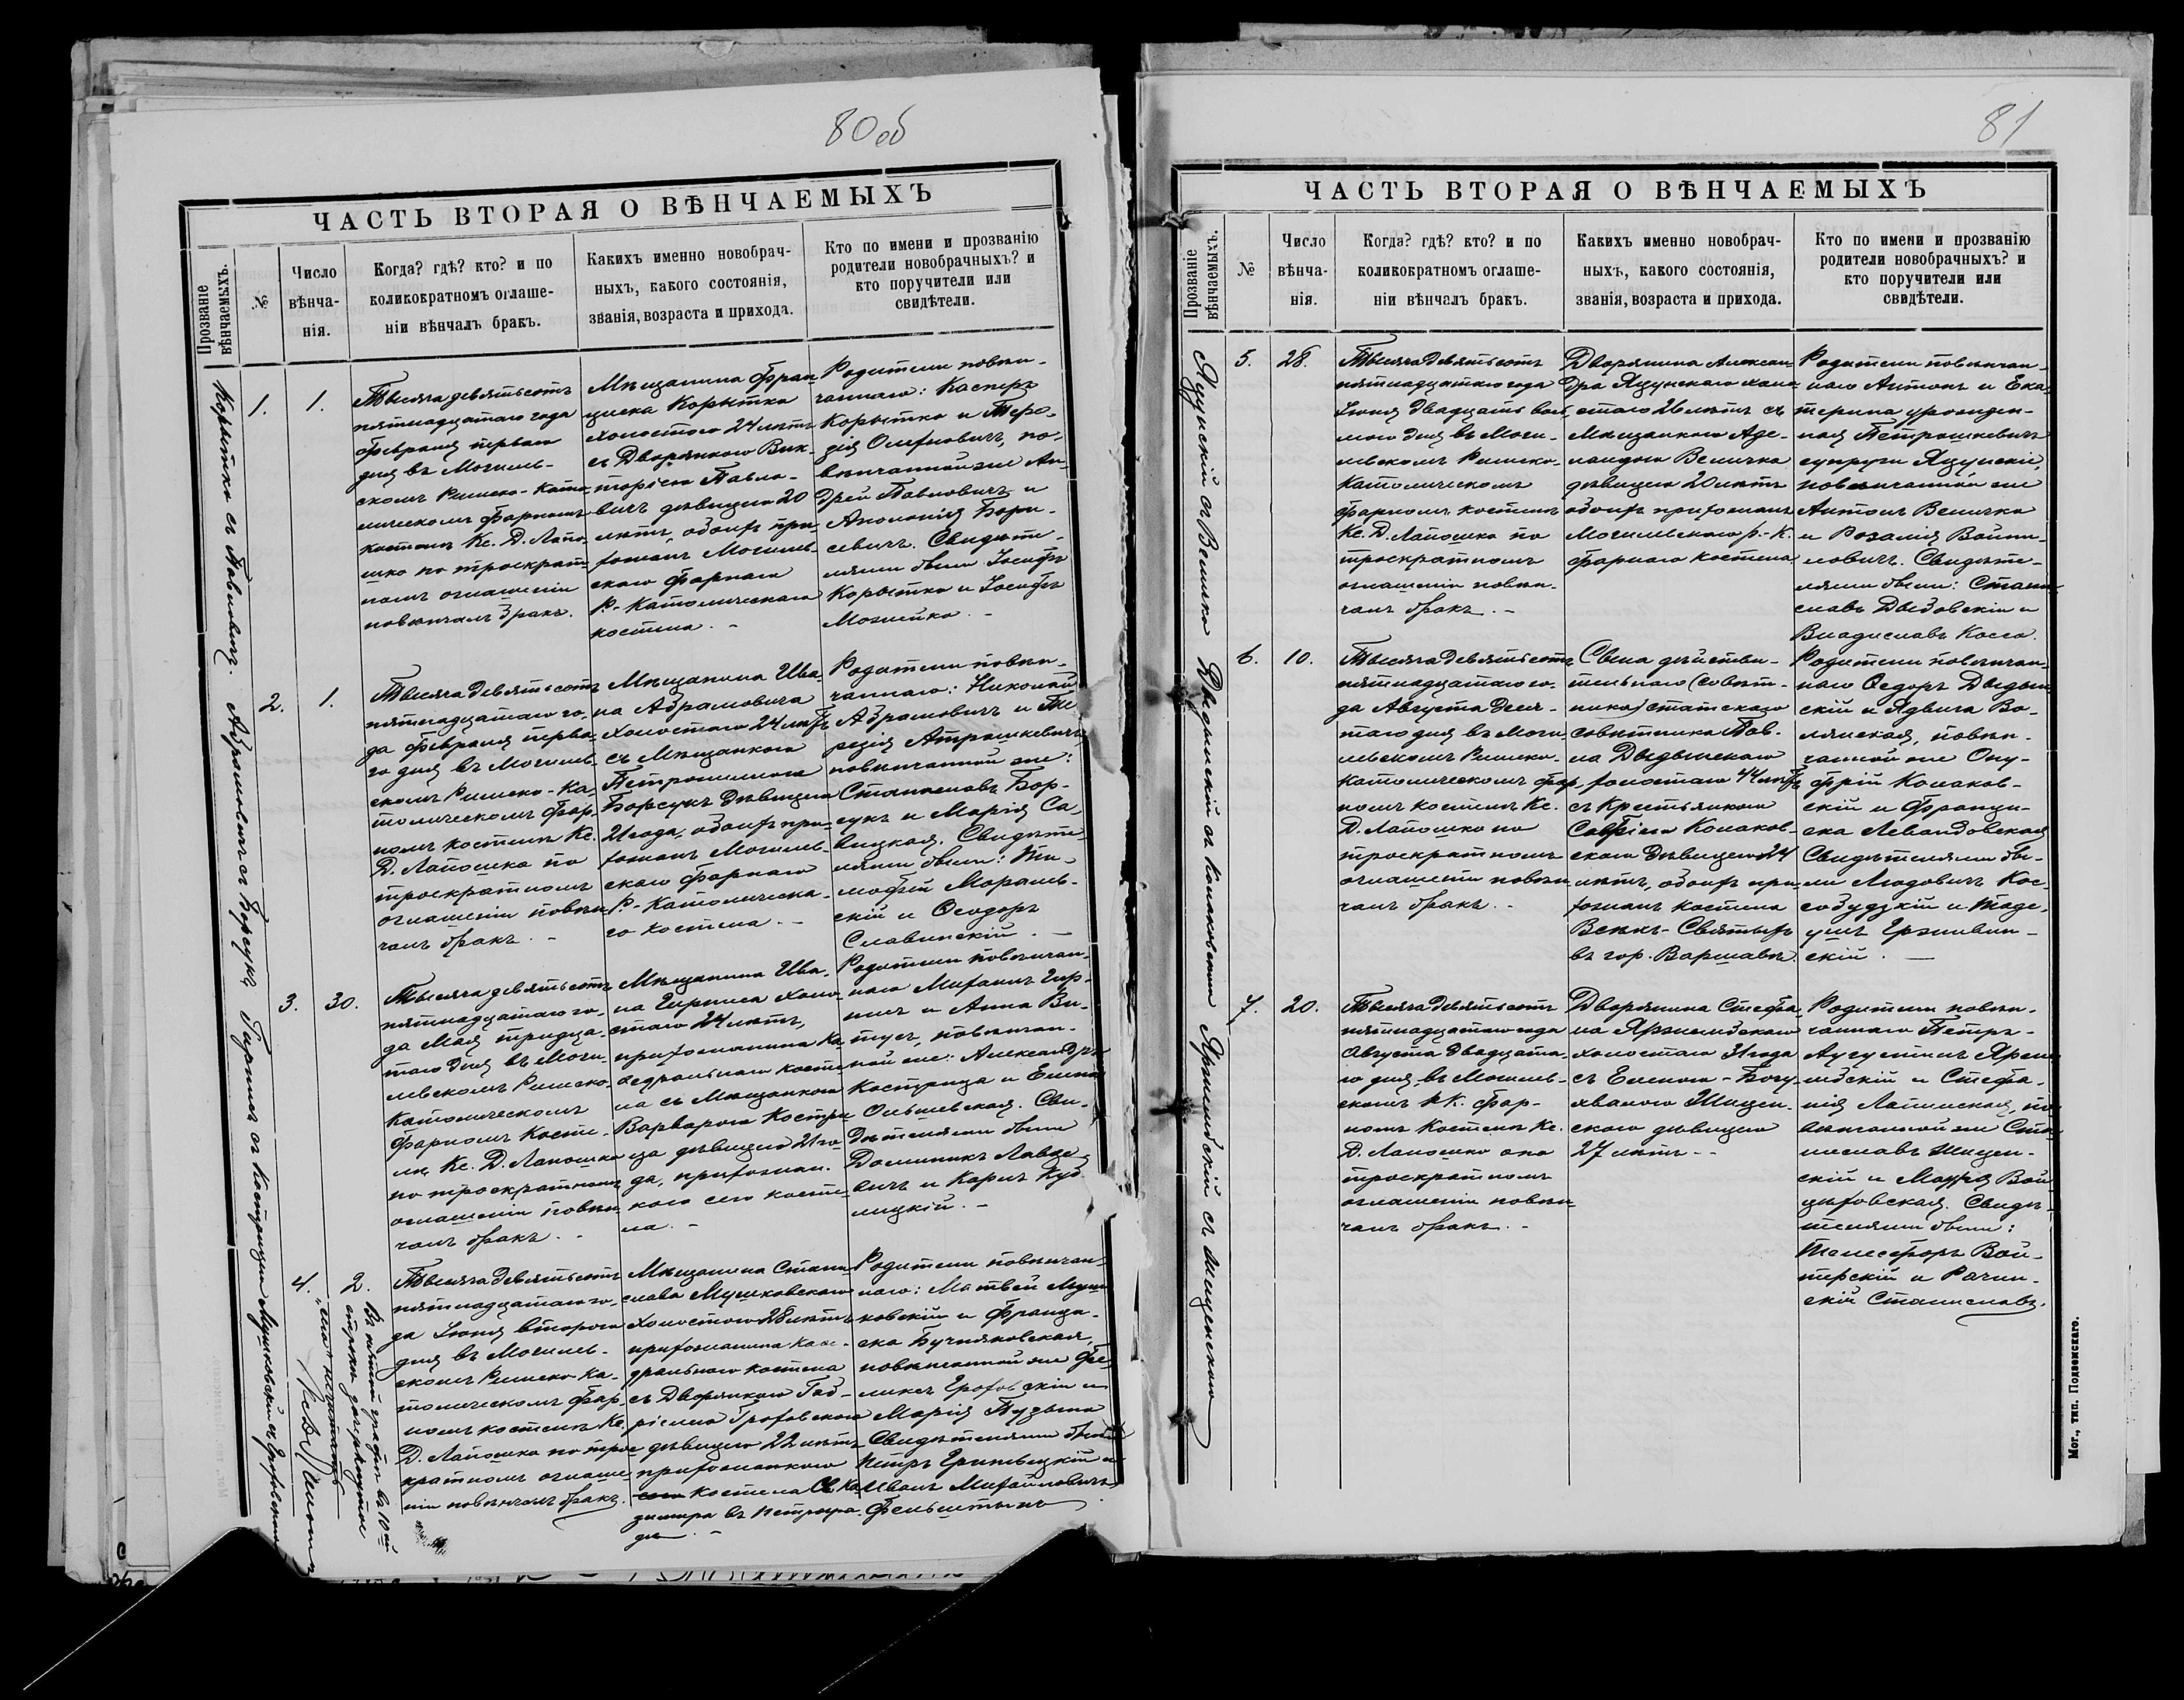 80 об
ЧАСТЬ ВТОРАЯ О ВѢНЧАЕМЫХЪ
Прозваніе
вѣнчаемыхъ.
№
Число
вѣнча-
нія.
Когда? гдѣ? кто? и по
коликократномъ оглаше-
ніи вѣнчалъ бракъ.
Какихъ именно новобрач-
ныхъ, какого состоянія,
званія, возраста и прихода.
Кто по имени и прозванію
родители новобрачныхъ? и
кто поручители или
свидѣтели.
Корытко съ Павловичъ.
1.
1.
Тысяча девятьсотъ
пятнадцатаго года
февраля перваго
дня въ Могилев-
скомъ Римско-Като-
лическомъ фарномъ
костелѣ Кс. Д. Лапо-
шко по троекрат-
номъ оглашеніи
повѣнчалъ бракъ.
Мѣщанина Фран-
циска Корытко
холостого 24 лѣтъ
съ Дворянкою Вик-
торіею Павло-
вичъ дѣвицею 20
лѣтъ, обоихъ при-
хожанъ Могилев-
скаго фарнаго
Р.-Католическаго
костела. -
Родители повѣн-
чаннаго: Касперъ
Корытко и Тере-
зія Олехновичъ, по-
вѣнчанной же Ан-
дрей Павловичъ и
Аполонія Бори-
севичъ. Свидѣте-
лями были Іосифъ
Корытко и Іосифъ
Можейко. -
Абрамовичъ съ Борсукъ
2.
1.
Тысяча девятьсотъ
пятнадцатаго го-
да февраля перва-
го дня въ Могилев-
скомъ Римско-Ка-
толическомъ фар-
номъ костелѣ Кс.
Д. Лапошко по
троекратномъ
оглашеніи повѣн-
чалъ бракъ. -
Мѣщанина Ива-
на Абрамовича
холостаго 24 лѣтъ
съ Мѣщанкою
Петронелею
Борсукъ дѣвицею
21 года, обоихъ при-
хожанъ Могилев-
скаго фарнаго
Р.-Католическа-
го костела. -
Родители повѣн-
чаннаго: Николай
Абрамовичъ и Те-
резія Атрашкевичъ,
повѣнчанной же:
Станиславъ Бор-
сукъ и Марія Са-
вицкая. Свидѣте-
лями были: Ти-
мофей Мораль-
скій и Ѳеодоръ
Славинскій. -
Гирпиль съ Кострицею
3.
30.
Тысяча девятьсотъ
пятнадцатаго го-
да Мая тридца-
таго дня въ Моги-
левскомъ Римско-
Католическомъ
фарномъ Косте-
лѣ Кс. Д. Лапошко
по троекратномъ
оглашеніи повѣн-
чалъ бракъ. -
Мѣщанина Ива-
на Гирписа холо-
стаго 24 лѣтъ,
прихожанина Ка-
ѳедральнаго косте-
ла съ Мѣщанкою
Варварою Костри-
ца дѣвицею 21 го-
да, прихожан-
кою сего косте-
ла. -
Родители повѣнчан-
наго Михаилъ Гир-
пилъ и Анна Ви-
тусъ, повѣнчан-
ной же: Александръ
Кострица и Елена
Ольшевская. Сви-
дѣтелями были
Доминикъ Лавце-
вичъ и Карлъ Куб-
лицкій. -
Мушковскій съ Гроховскою
4.
2.
Тысяча девятьсотъ
пятнадцатаго го-
да Іюня второго
дня въ Могилев-
скомъ Римско-Ка-
толическомъ фар-
номъ костелѣ Кс.
Д. Лапошко по трое-
кратномъ оглаше-
ніи повѣнчалъ бракъ.
Мѣщанина Стани-
слава Мушковскаго
холостого 28 лѣтъ
прихожанина Каѳе-
дральнаго костела
съ Дворянкою Габ-
ріелею Гроховскою
дѣвицею 22 лѣтъ
прихожанкою
костела Св. Ка-
зимира въ Петрогра-
дѣ. -
Родители повѣнчан-
наго: Матвей Муш-
ковскій и Франци-
ска Бучняковская,
повѣнчанной же Фе-
ликсъ Гроховскій и
Марія Пузына
Свидѣтелями были
Петръ Гриневицкій и
Иванъ Михайловичъ
Фельштынъ.
Въ пятой графѣ въ 10ой
строкѣ зачеркнутое
„сего“ нечитать
81
ЧАСТЬ ВТОРАЯ О ВѢНЧАЕМЫХЪ
Прозваніе
вѣнчаемыхъ.
№
Число
вѣнча-
нія.
Когда? гдѣ? кто? и по
коликократномъ оглаше-
ніи вѣнчалъ бракъ.
Какихъ именно новобрач-
ныхъ, какого состоянія,
званія, возраста и прихода.
Кто по имени и прозванію
родители новобрачныхъ? и
кто поручители или
свидѣтели.
Яцунскій съ Величко
5.
28.
Тысяча девятьсотъ
пятнадцатаго года
Іюня двадцать вось-
мого дня въ Моги-
левскомъ Римско-
Католическомъ
фарномъ костелѣ
Кс. Д. Лапошко по
троекратномъ
оглашеніи повѣн-
чалъ бракъ. -
Дворянина Алексан-
дра Яцунскаго холо-
стаго 26 лѣтъ съ
Мѣщанкою Аде-
лаидою Величко
дѣвицею 20 лѣтъ
обоихъ прихожанъ
Могилевскаго р.-к.
фарнаго костела
Родители повѣнчан-
наго Антонъ и Ека-
терина урожден-
ная Петрашкевичъ
супруги Яцунскіе,
повѣнчанной же
Антонъ Величко
и Розалія Войни-
ловичъ. Свидѣте-
лями были: Стани-
славъ Дыбовскій и
Владиславъ Косса.
Дыдынскій съ Колаковскою
6.
10.
Тысяча девятьсотъ
пятнадцатаго го-
да Августа деся-
таго дня въ Моги-
левскомъ Римско-
Католическомъ фар-
номъ костелѣ Кс.
Д. Лапошко по
троекратномъ
оглашеніи повѣн-
чалъ бракъ. -
Сына дѣйстви-
тельнаго (совѣт-
ника) статскаго
совѣтника Пав-
ла Дыдынскаго
холостаго 44 лѣтъ
съ Крестьянкою
Софіею Колаков-
скою дѣвицею 24
лѣтъ, обоихъ при-
хожанъ костела
Всѣхъ-Святыхъ
въ гор. Варшавѣ.
Родители повѣнчан-
наго Ѳедоръ Дыдын-
скій и Ядвига Во-
лянская, повѣн-
чанной же Ону-
фрій Колаков-
скій и Франци-
ска Левандовская
Свидѣтелями бы-
ли Людовикъ Кос-
собудзкій и Таде-
ушъ Грживин-
скій. -
Яржембскій съ Шиценскою
7.
20.
Тысяча девятьсотъ
пятнадцатаго года
Августа двадцата-
го дня, въ Могилев-
скомъ Р.К. фар-
номъ Костелѣ Кс.
Д. Лапошко опо
троекратномъ
оглашеніи повѣн-
чалъ бракъ. -
Дворянина Стефа-
на Яржембскаго
холостаго 31 года
съ Еленою-Богу-
хваною Шицен-
скою дѣвицею
27 лѣтъ. -
Родители повѣн-
чаннаго Петръ-
Аугустинъ Ярже-
мбскій и Стефа-
нія Лапинская, по-
вѣнчанной же Ста-
ниславъ Шицен-
скій и Марія Вой-
цѣховская. Свидѣ-
телями были:
Телесфоръ Вой-
терскій и Рачин-
скій Станиславъ.
Мог., тип. Подвемскаго.